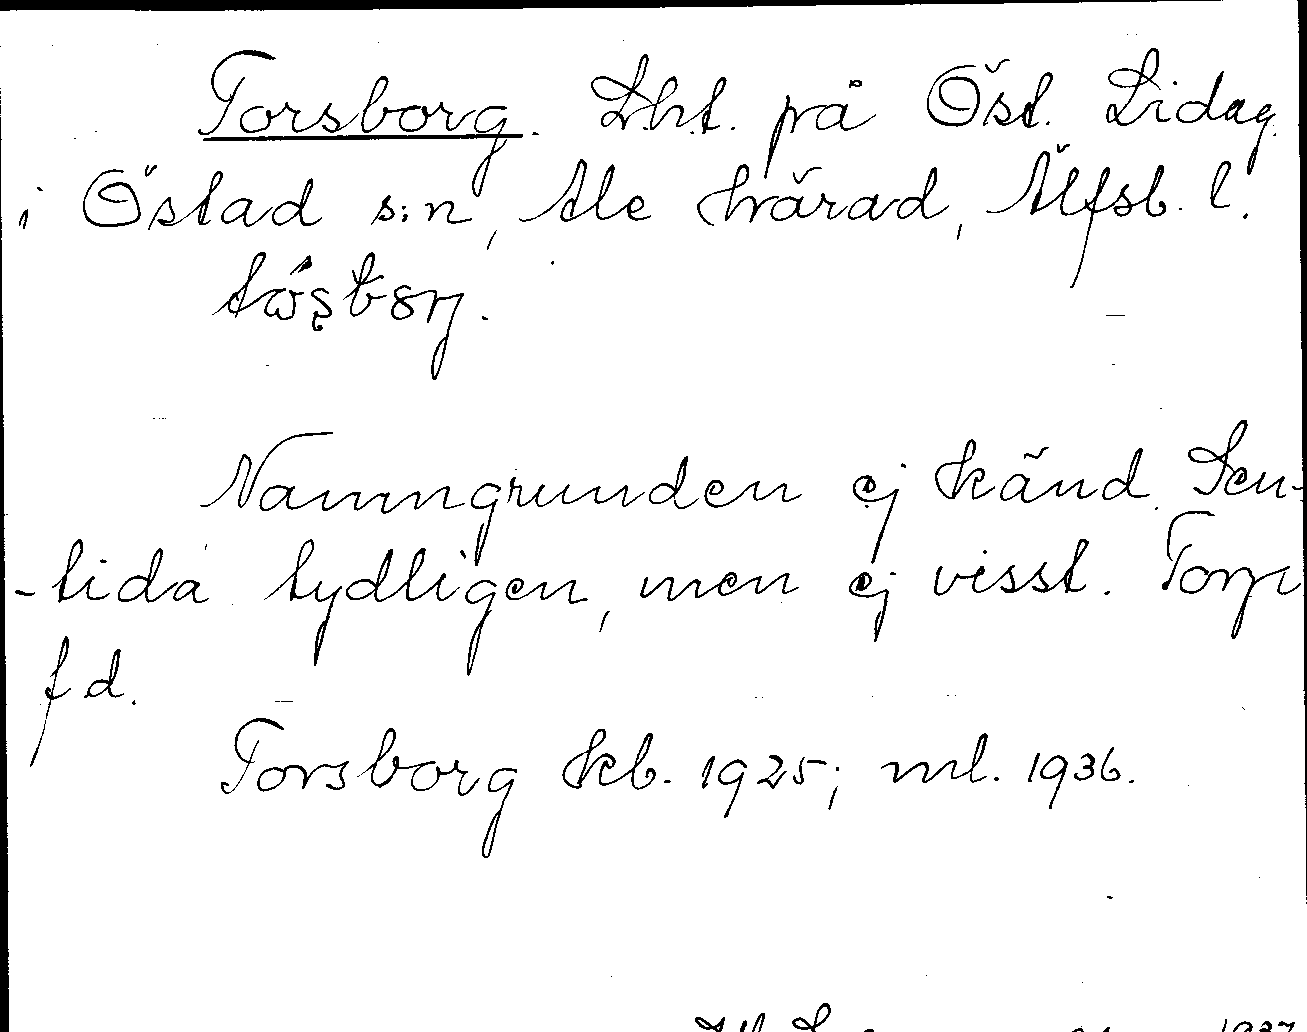 Torsborg. Lht. på Öst. Lidag.
i Östad s:n, Ale härad, Älfsb. l.
Namngrunden ej känd. Sen-
-tida tydligen, men ej visst. Torp
f d.
Torsborg kb. 1925; ml. 1936.
1937